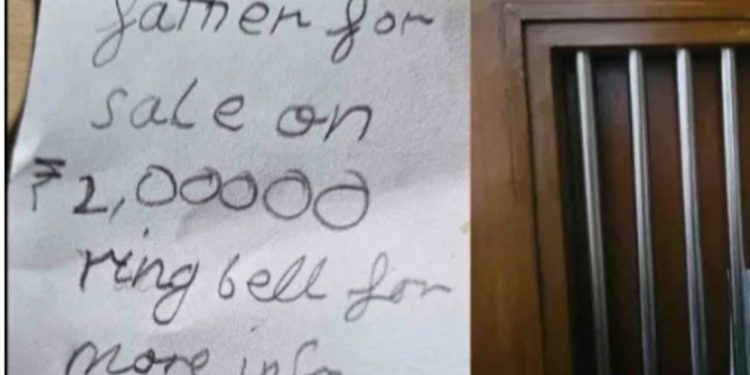 father for
sale on
₹2,00000
ring bell for
more info